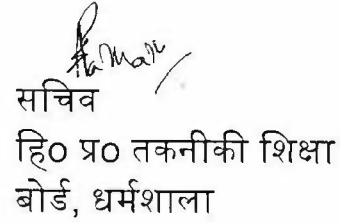 सचिव
हि० प्र० तकनीकी शिक्षा
बोर्ड, धर्मशाला